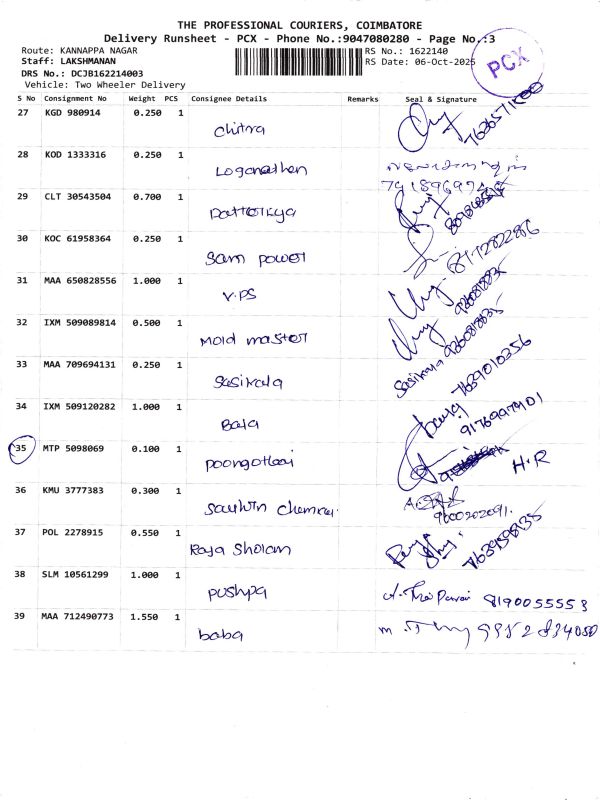 THE PROFESSIONAL COURIERS, COIMBATORE
Delivery Runsheet - PCX - Phone No.:9047080280 - Page No.:3
Route: KANNAPPA NAGAR
RS No.: 1622140
Staff: LAKSHMANAN
RS Date: 06-Oct-2025
DRS No.: DCJB162214003
Vehicle: Two Wheeler Delivery
PCX
S No Consignment No Weight PCS Consignee Details Remarks Seal & Signature
27 KGD 980914 0.250 1
chitra
28 KOD 1333316 0.250 1
Loganathan
29 CLT 30543504 0.700 1
30 KOC 61958364 0.250 1
Sam power
31 MAA 650828556 1.000 1
V.PS
32 IXM 509089814 0.500 1
mold master
33 MAA 709694131 0.250 1
Sasikala
Sasikala
7639010356
34 IXM 509120282 1.000 1
Bala
35 MTP 5098069 0.100 1
H.R
36 KMU 3777383 0.300 1
9600202091.
37 POL 2278915 0.550 1
Raja Sholam
38 SLM 10561299 1.000 1
pushpa
8190055553
39 MAA 712490773 1.550 1
baba